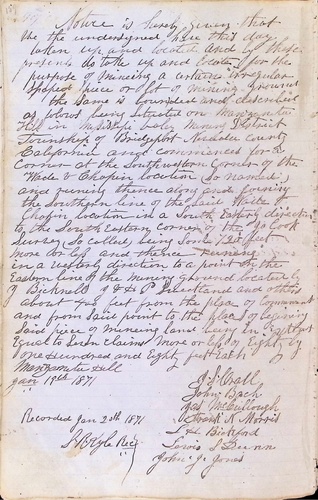 Notice is hereby given that
We the undersigned have this day
taken up and located and by these
presents do take up and locate for the
purpose of mineing a certain irregular
shaped piece or lot of mineing ground
the same is bounded and described
as folows being situated on Manzanita
Hill in Mining District
Township of Bridgeport Nevada County
California and Commences for a
Corner at the Southwestern Corner of the
Waite & Chapin location (so named)
and runing thence along and Joining
the Southern line of the Said Waite &
Chapin location in a South Easterly direction
to the South Eastern corner of the Cook
Survey (so called) being Some 725 feet
more or less and thence runing
in a westerly direction to a point on the
Eastern line of the Mining ground located by
J Bicknell & H P and others
about 425 feet from the place of Commencement
and from Said point to the place of begining
Said piece of mineing land being in Extent
Equal to Seven claims more or less of Eighty by
one Hundred and Eighty feet Each
Manzanita Hill
Jan 19th 1871
J. S. Crall
John Bach
Jas McCullough
Frank N Morris
L H Bickford
Lewis S Dunn
John J. Jones
Recorded Jan 20th 1871
Kyle Rec